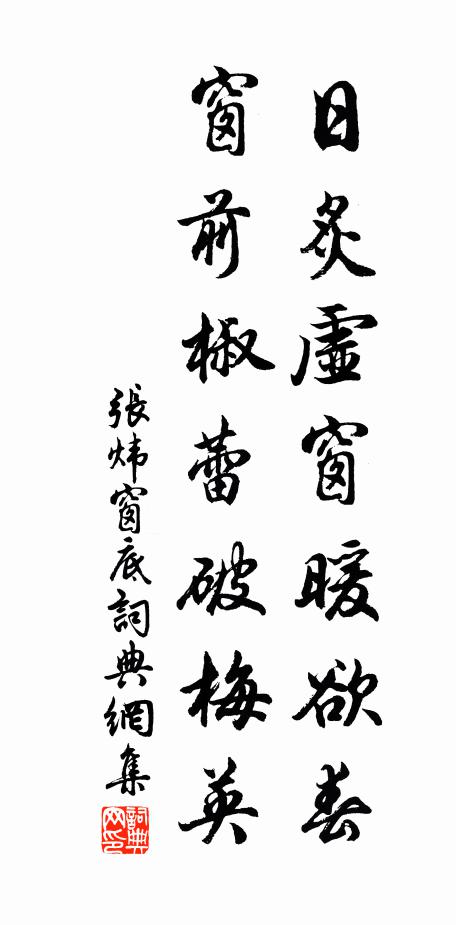 日炙虛窗暖欲春
窗前椒蕾破梅英
張煒窗底詞典網集
詞典網印